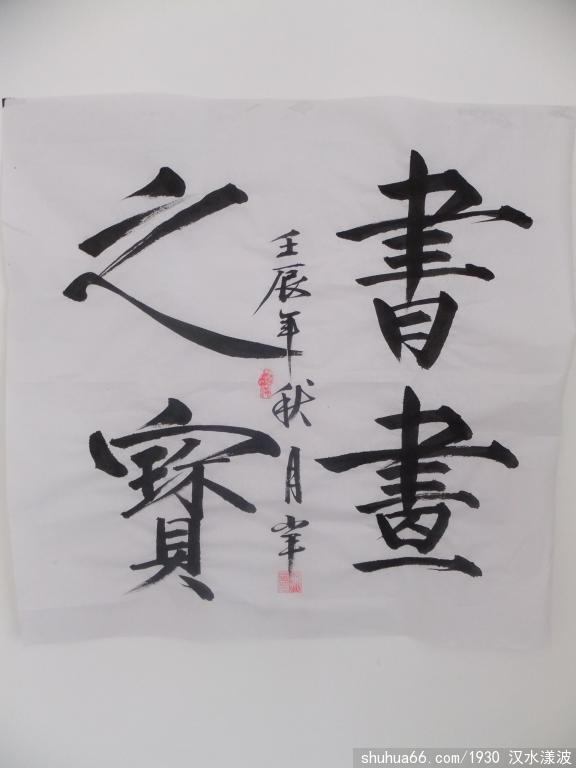 書畫
之寶
壬辰年秋月
shuhua66.com/1930 汉水漾波